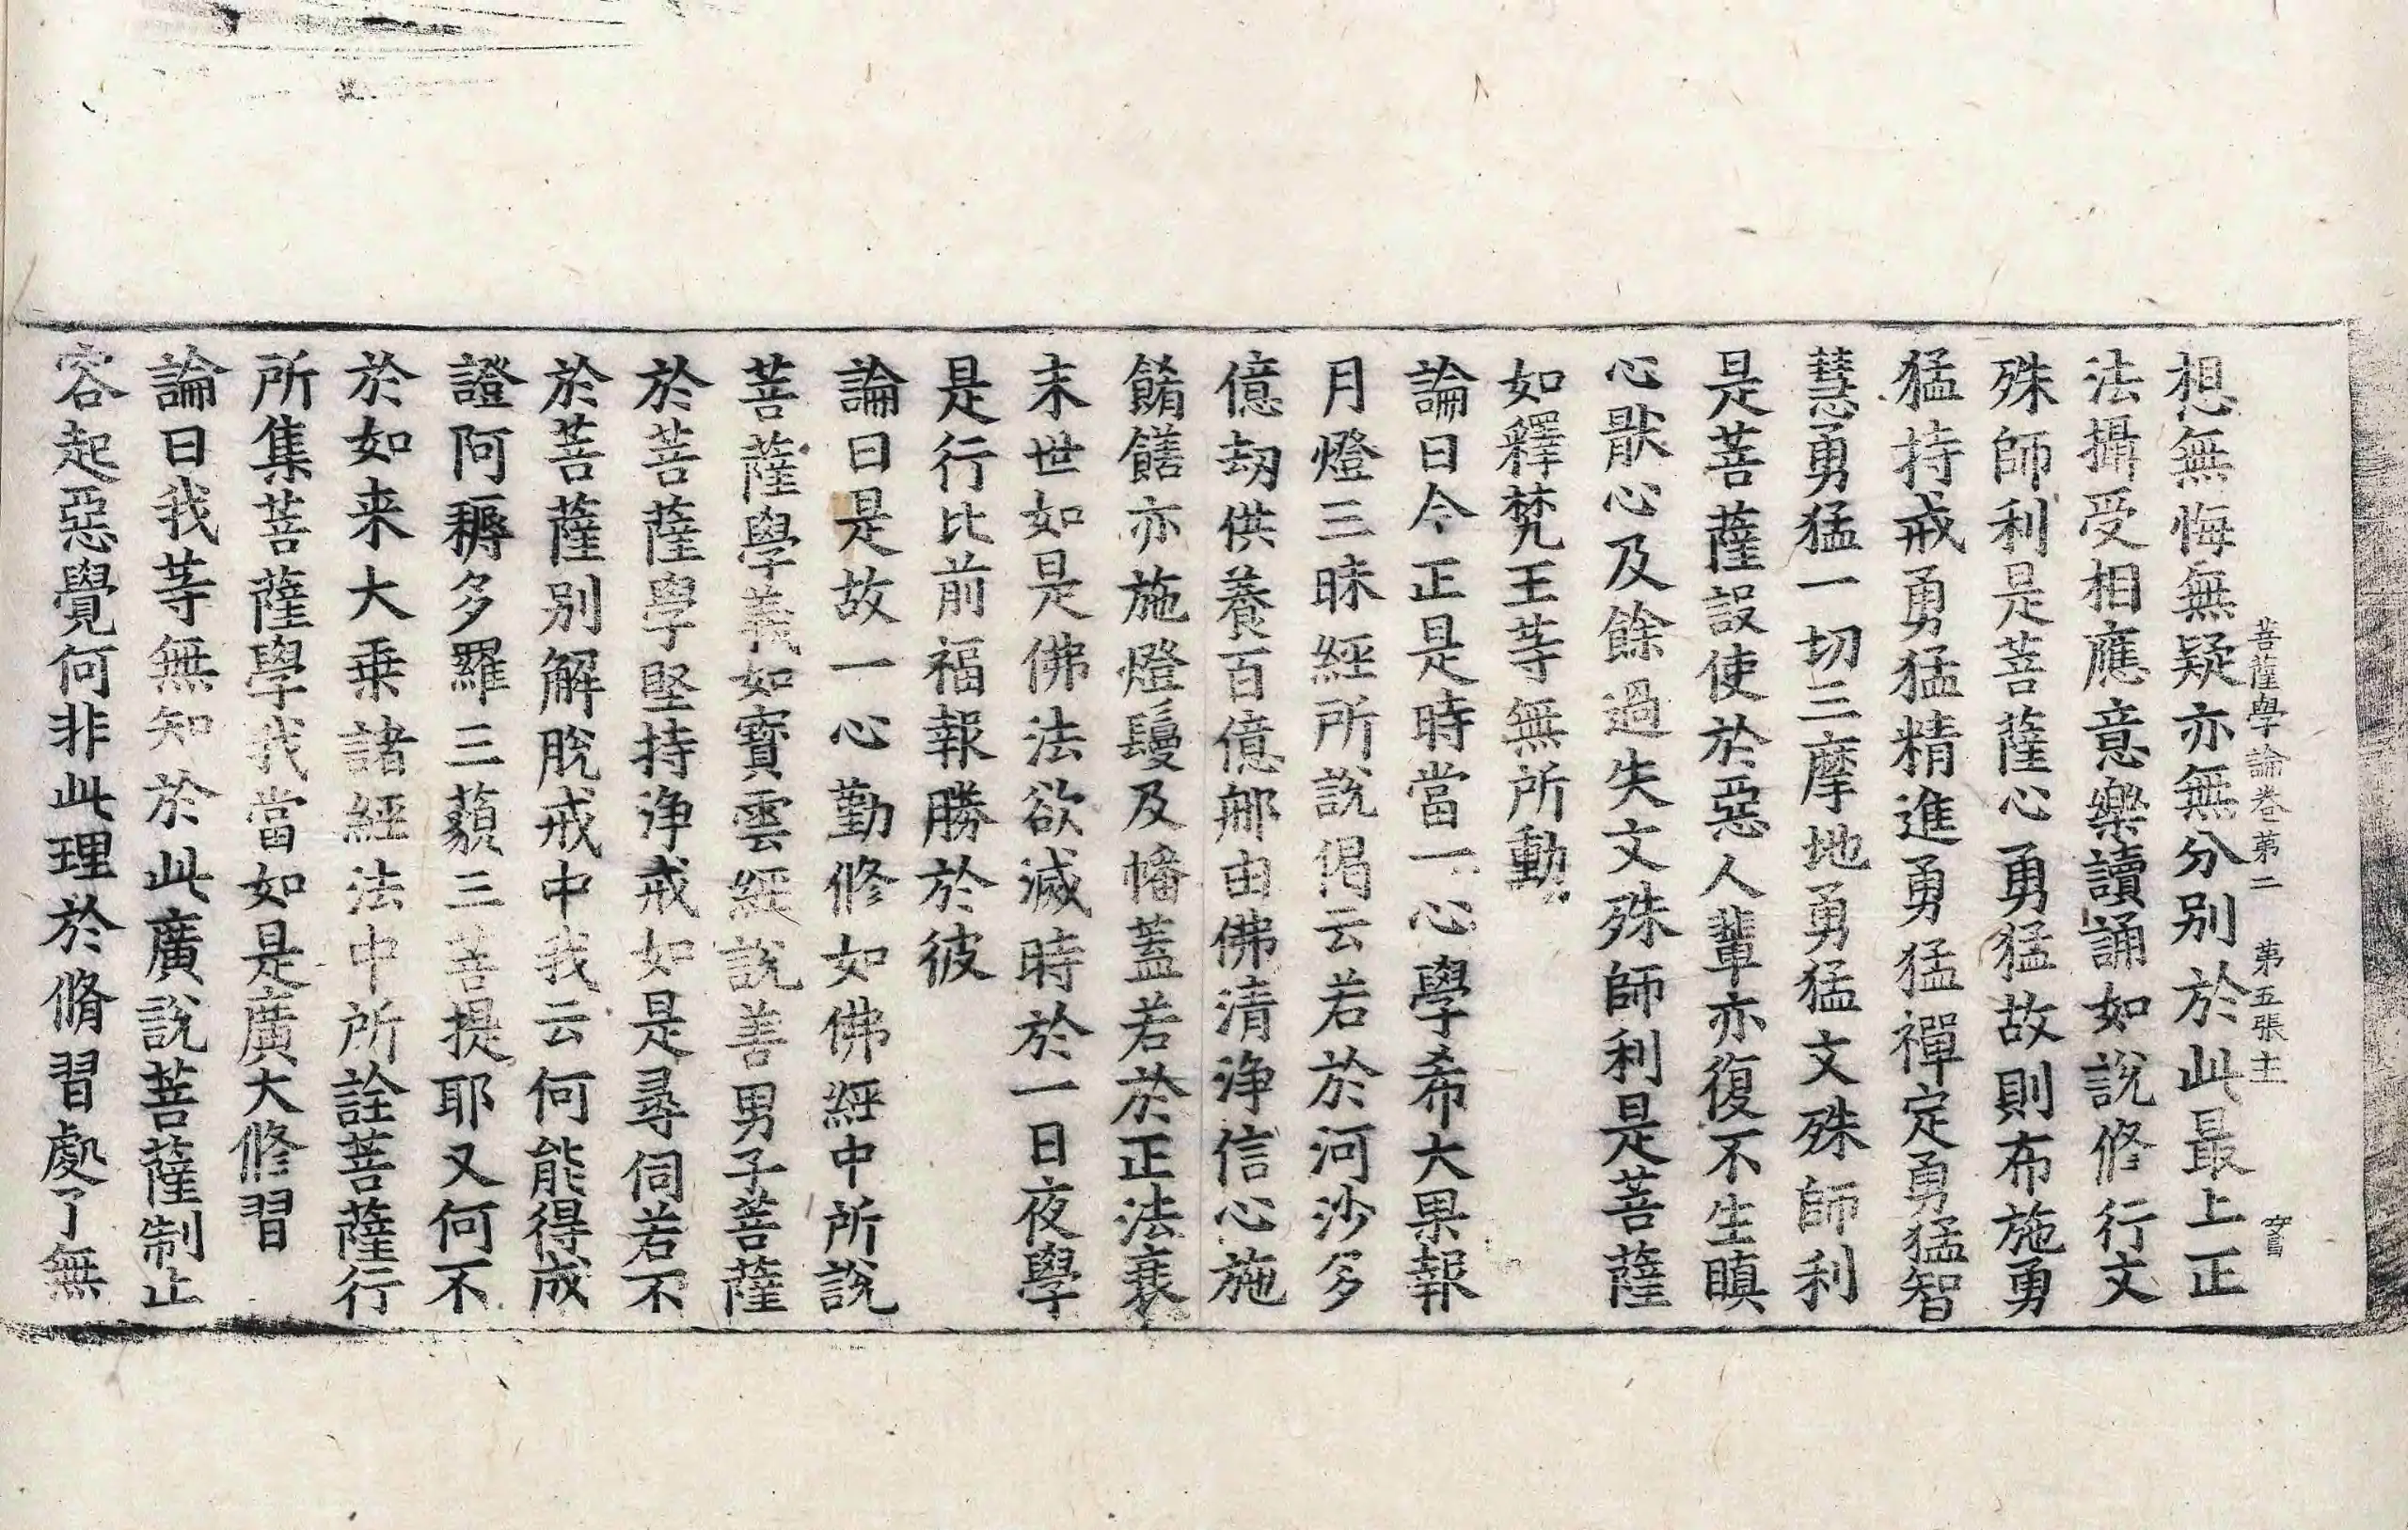 菩薩學論卷第二　第五張　主
想無悔無疑亦無分别於此最上正
法攝受相應意樂讀誦如說修行文
殊師利是菩薩心勇猛故則布施勇
猛持戒勇猛精進勇猛禪定勇猛智
慧勇猛一切三摩地勇猛文殊師利
是菩薩設使於惡人輩亦復不生瞋
心猒心及餘過失文殊師利是菩薩
如釋梵王等無所動
論曰今正是時當一心學希大果報
月燈三昧經所說偈云若於河沙多
億劫供養百億那由佛清淨信心施
餚饍亦施燈鬘及幡蓋若於正法衰
末世如是佛法欲滅時於一日夜學
是行比前福報勝於彼
論曰是故一心勤修如佛經中所說
菩薩學義如寶雲經說善男子菩薩
於菩薩學堅持淨戒如是尋伺若不
於菩薩別解脫戒中我云何能得成
證阿耨多羅三藐三菩提耶又何不
於如来大乗諸經法中所詮菩薩行
所集菩薩學我當如是廣大修習
論曰我等無知於此廣說菩薩制止
容起惡覺何非此理於脩習處了無